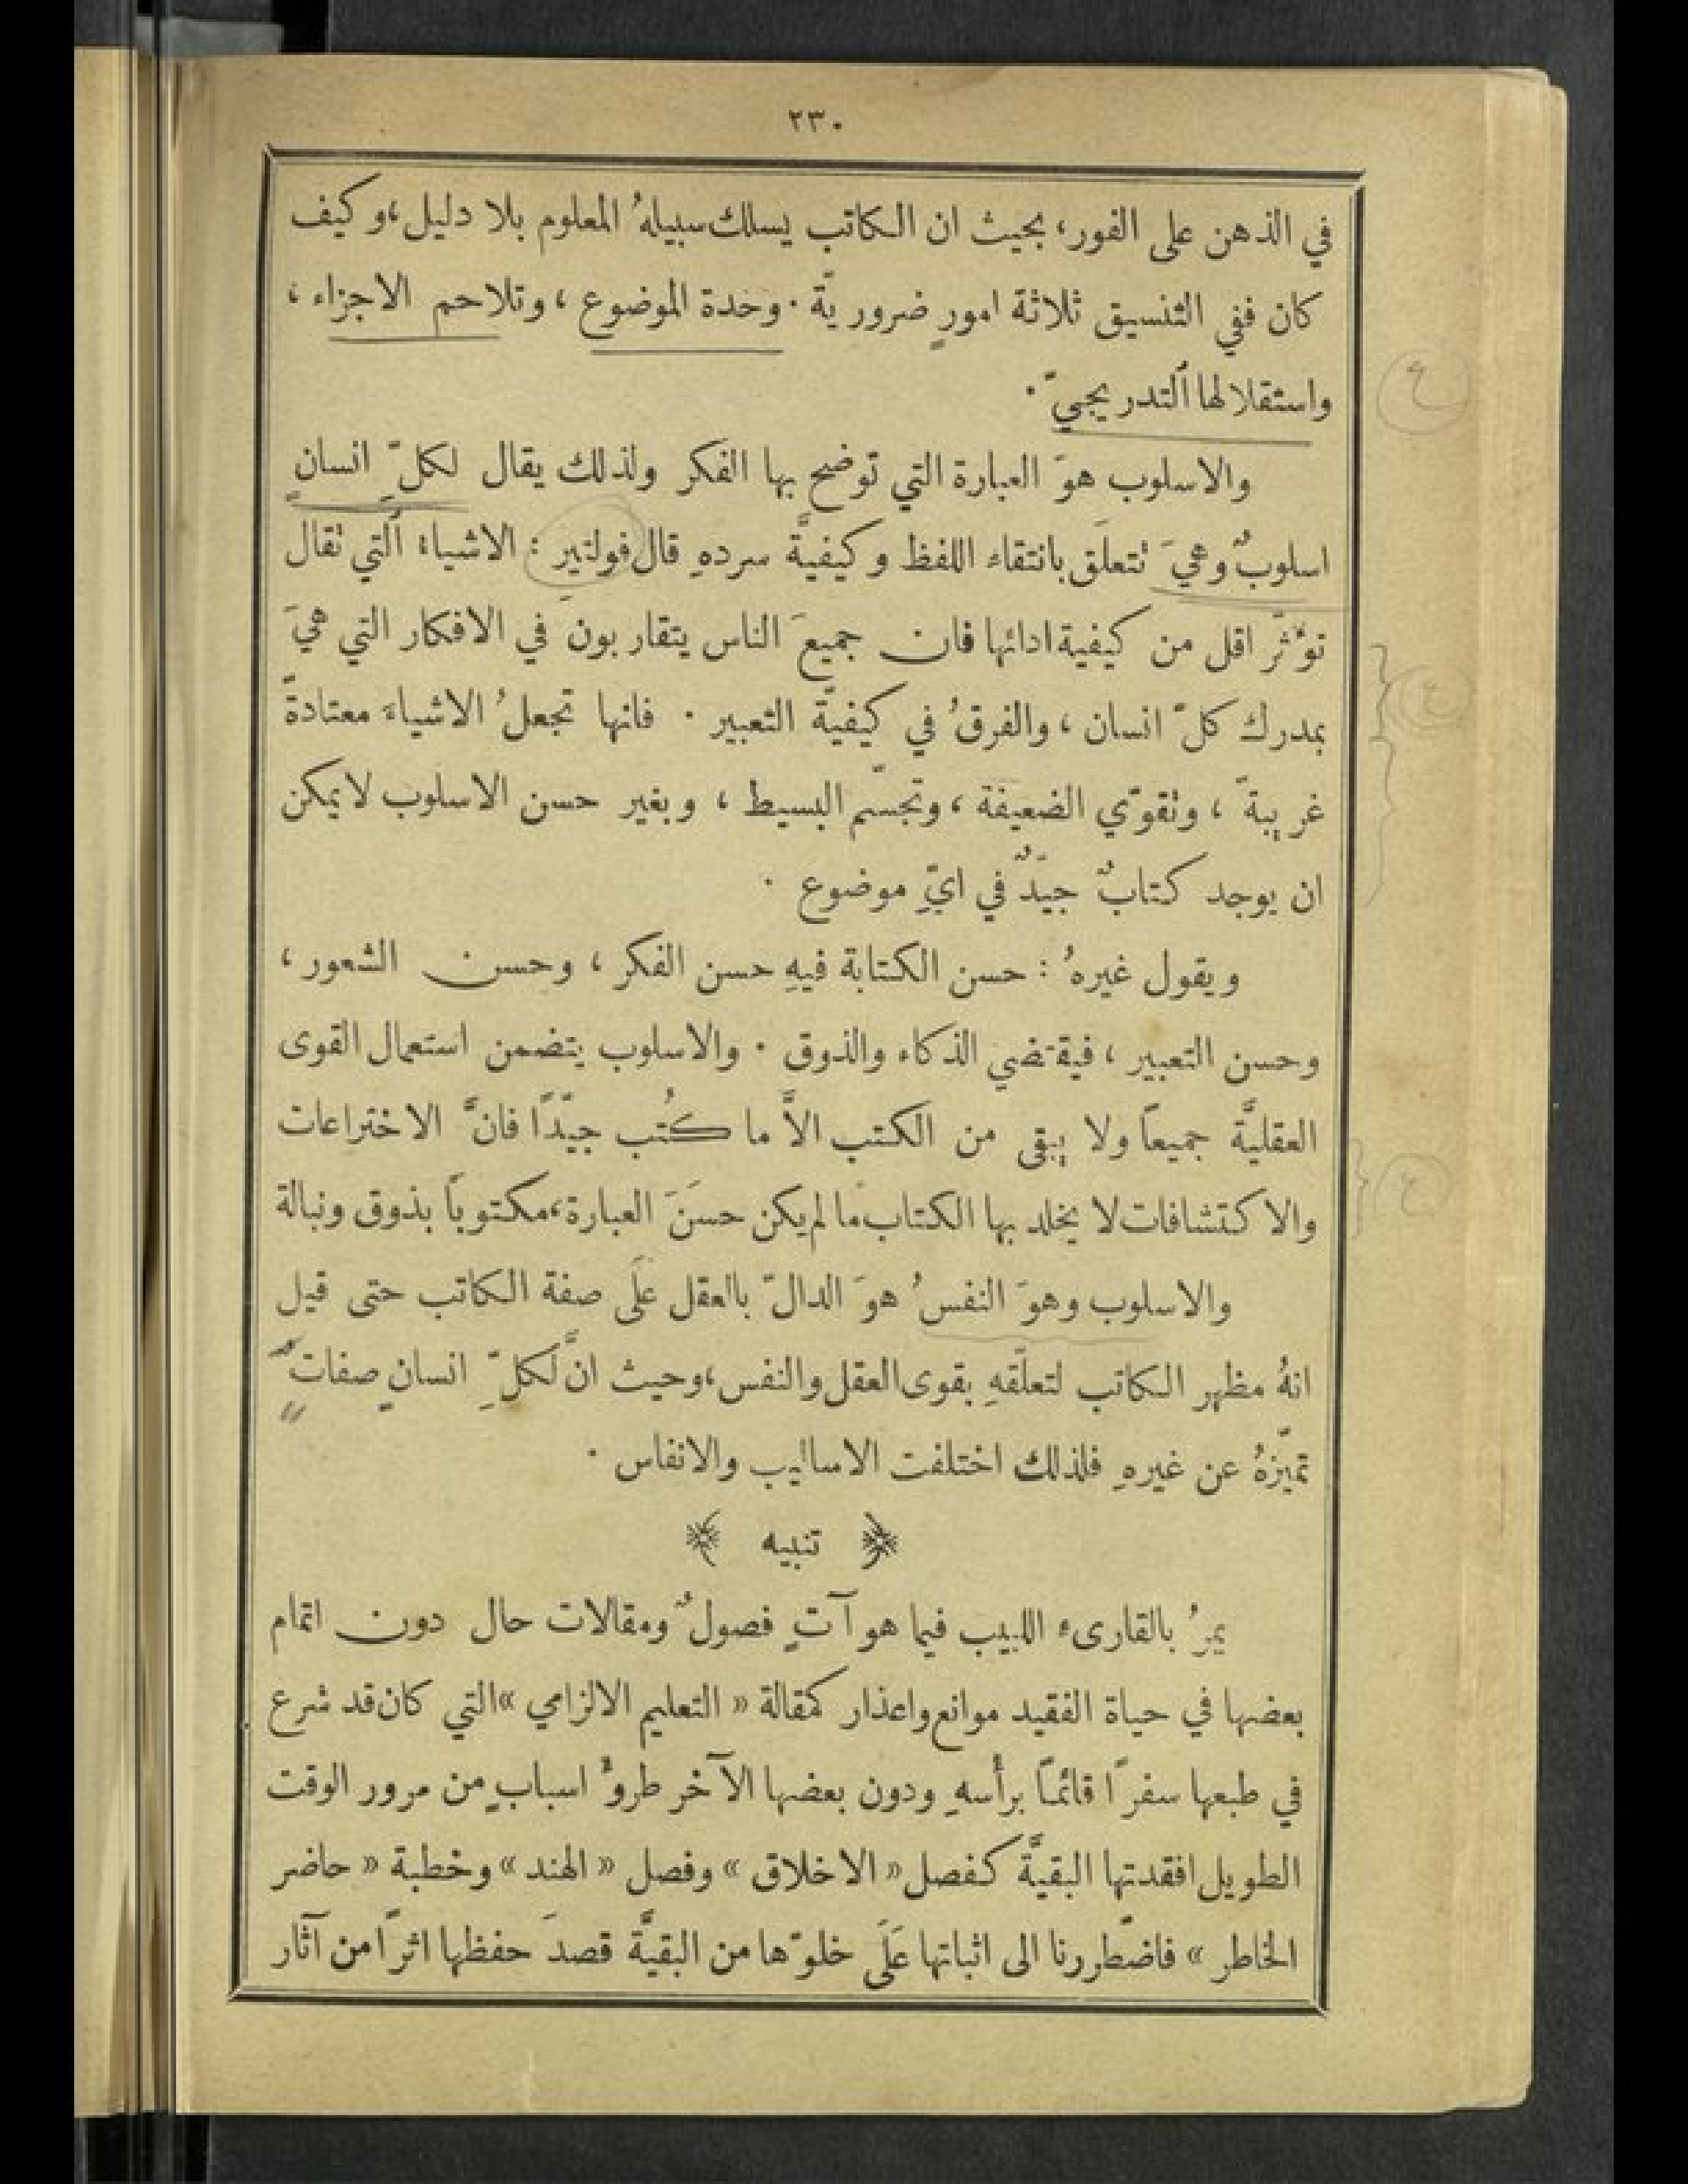 ٢٣٠
في الذهن على الفور، بحيث ان الكاتب يسلك سبيلهُ المعلوم بلا دليل، وكيف
كان ففي التنسيق ثلاثة امورٍ ضروريّة . وحدة الموضوع ، وتلاحم الاجزاء ،
واستقلالها ٱلتدريجيّ .
والاسلوب هوَ العبارة التي توضح بها الفكر ولذلك يقال لكلِّ انسانٍ
اسلوبٌ وهيَ تتعلَق بانتقاء اللفظ وكيفيَّة سردهِ قال فولتير : الاشياء ٱلتي تقال
تؤثّر اقل من كيفية ادائها فان جميعَ الناس يتقاربونَ في الافكار التي هيَ
بمدرك كلّ انسان ، والفرقُ في كيفيّة التعبير . فانها تجعلُ الاشياءَ معتادةً
غريبةً ، وتقوّي الضعيفة ، وتجسّم البسيط ، وبغير حسن الاسلوب لا يمكن
ان يوجد كتابٌ جيّدٌ في ايّ موضوع .
ويقول غيرهُ : حسن الكتابة فيهِ حسن الفكر ، وحسن الشعور ،
وحسن التعبير ، فيقتضي الذكاء والذوق . والاسلوب يتضمن استعمال القوى
العقليَّة جميعاً ولا يبقى من الكتب الاَّ ما كُتب جيّدًا فانَّ الاختراعات
والاكتشافات لا يخلد بها الكتاب ما لم يكن حسَنَ العبارة، مكتوباً بذوق ونبالة
والاسلوب وهوَ النفسُ هوَ الدالّ بالعقل عَلَى صفة الكاتب حتى قيل
انهُ مظهر الكاتب لتعلّقهِ بقوى العقل والنفس، وحيث انَّ لكلِّ انسانٍ صفاتٌ
تميّزهُ عن غيرهِ فلذلك اختلفت الاساليب والانفاس .
﴿ تنبيه ﴾
يمرُ بالقارىء اللبيب فيما هو آتٍ فصولٌ ومقالات حال دون اتمام
بعضها في حياة الفقيد موانع واعذار كمقالة « التعليم الالزامي » التي كان قد شرع
في طبعها سفرًا قائمًا برأسهِ ودون بعضها الآخر طروُّ اسبابٍ من مرور الوقت
الطويل افقدتها البقيَّة كفصل « الاخلاق » وفصل « الهند » وخطبة « حاضر
الخاطر » فاضّطررنا الى اثباتها عَلَى خلوّها من البقيَّة قصدَ حفظها اثرًا من آثار